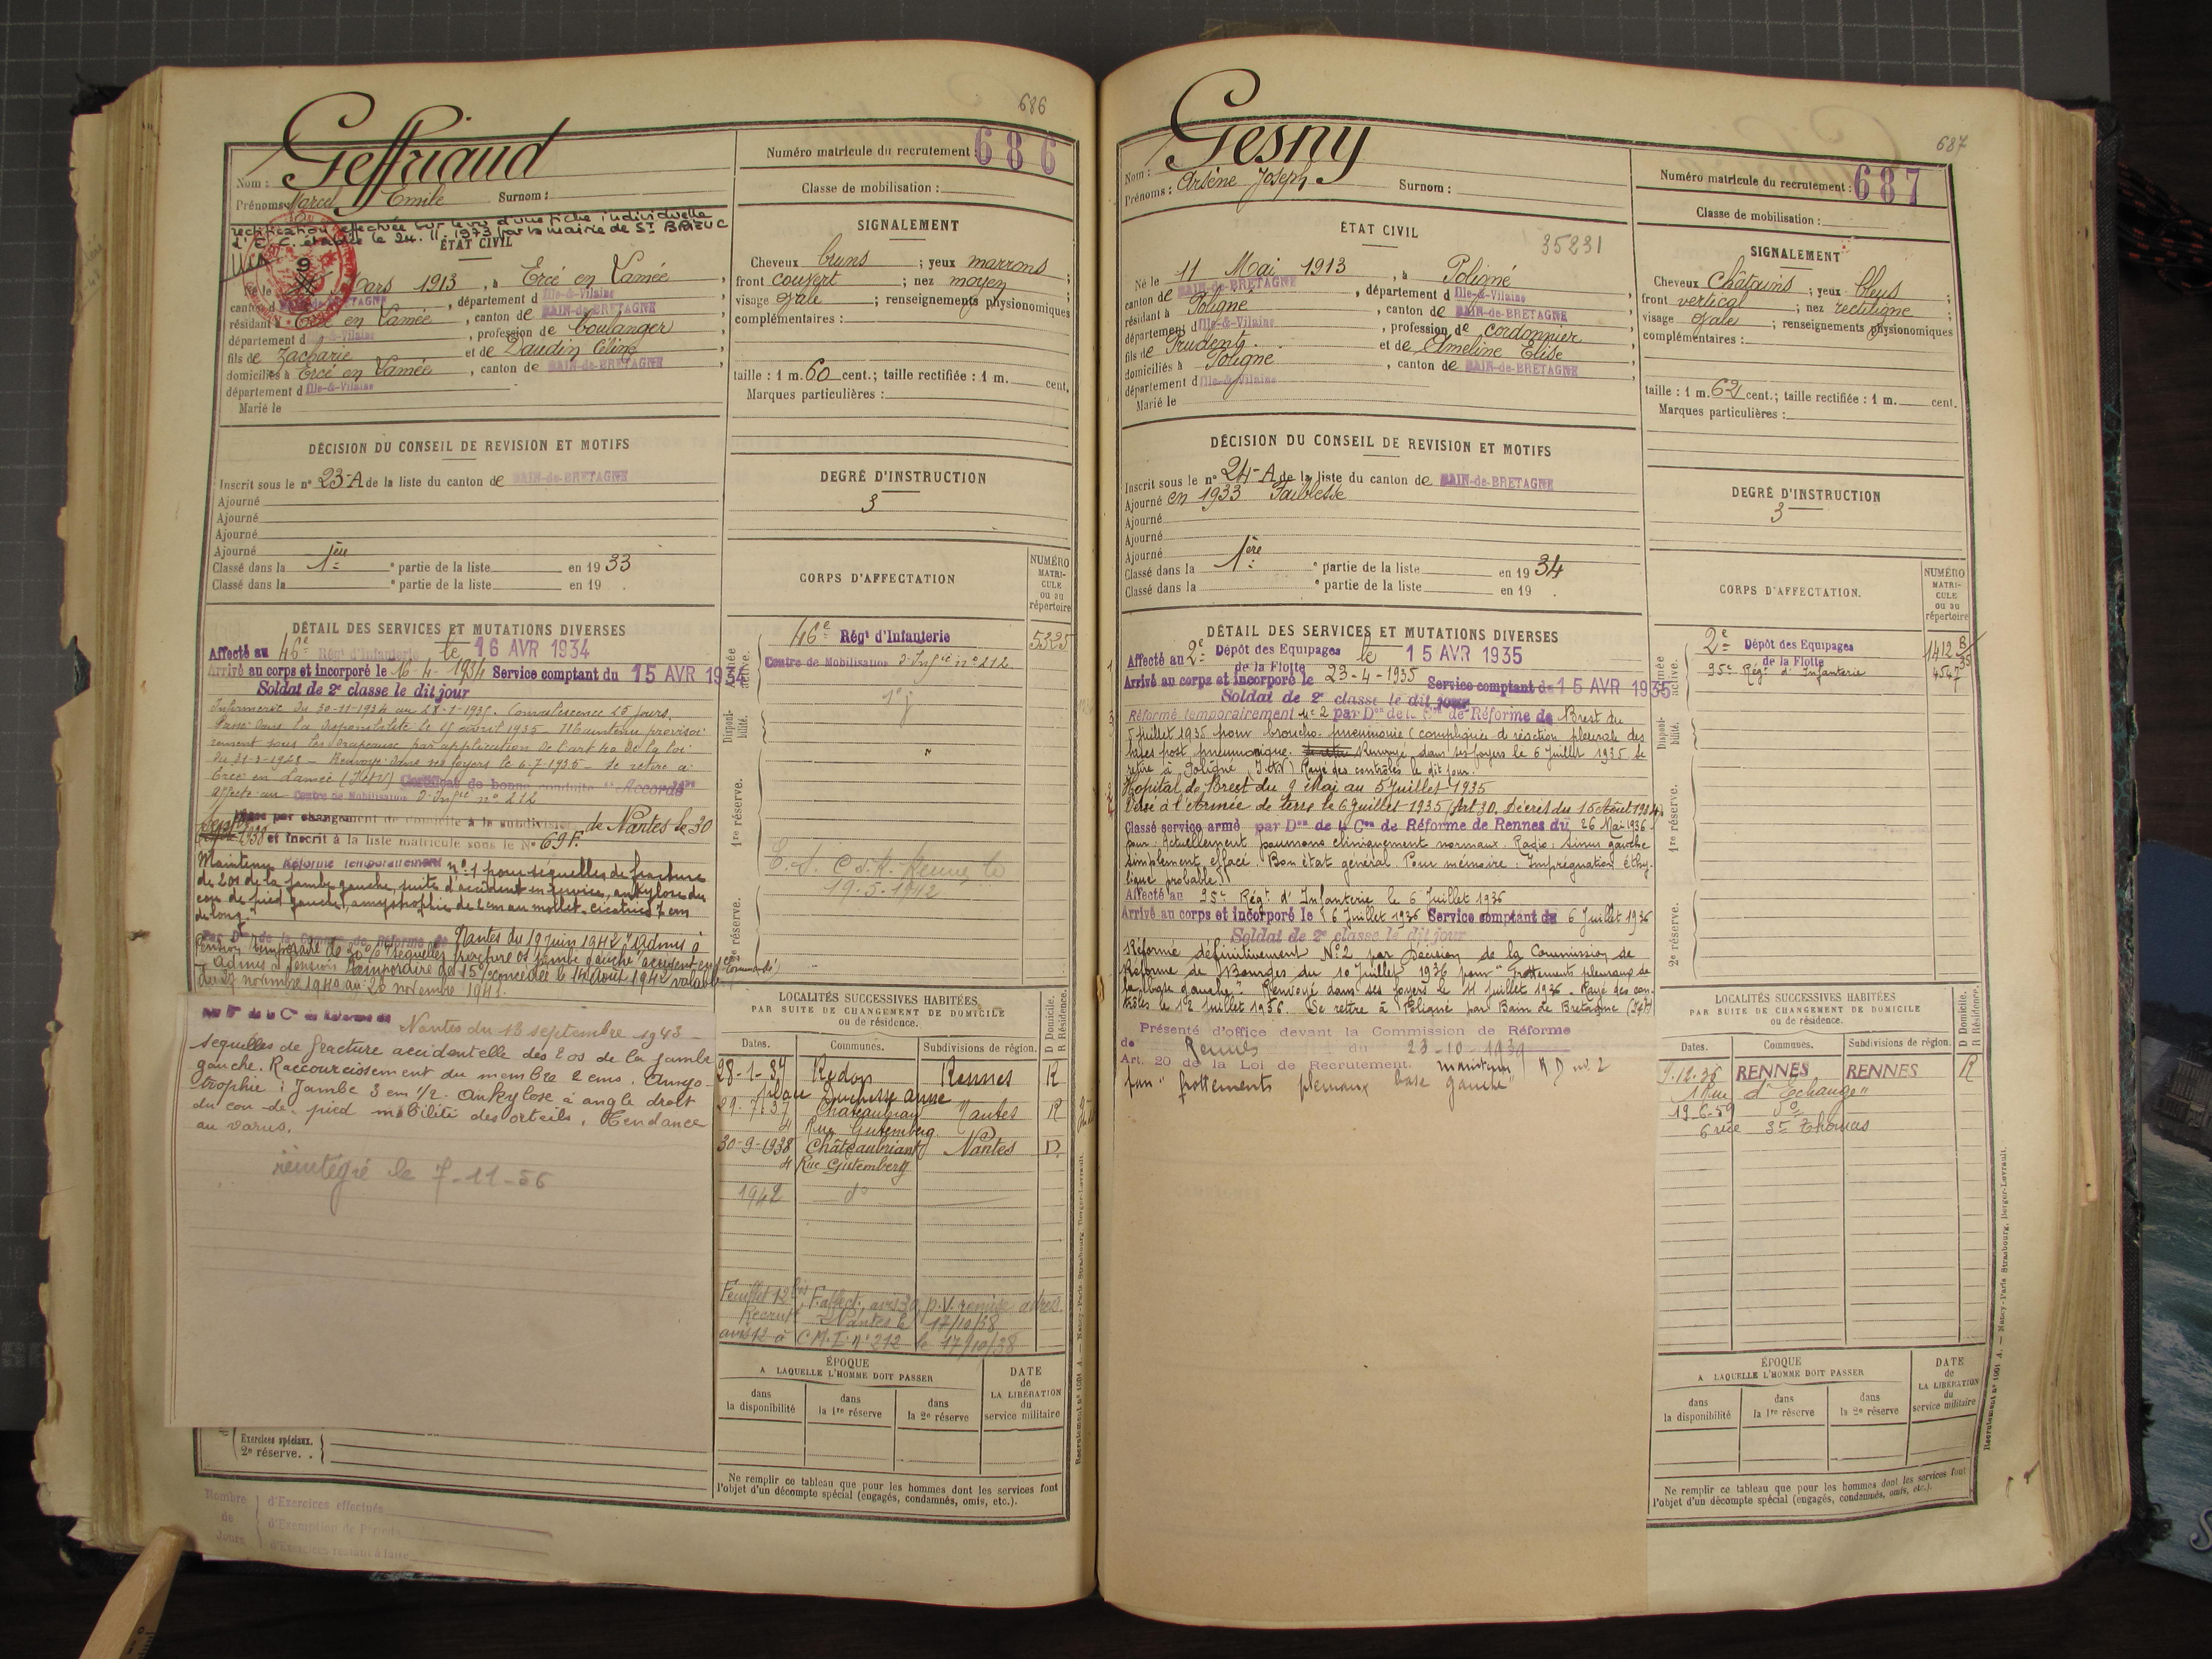 686
Geffriaud
Nom :
Prénoms : Marcel Emile Surnom :
Numéro matricule du recrutement : 686
Classe de mobilisation :
rectification effectuée sur le vu d'une fiche individuelle
d'E. C. établie le 24.11.1973 par la mairie de St BRIEUC
ÉTAT CIVIL
Né le 9 Mars 1913, à Ercé en Lamée,
canton d BAIN-de-BRETAGNE, département d Ille-&-Vilaine
résidant à Ercé en Lamée, canton de BAIN-DE-BRETAGNE
département d Ille-&-Vilaine, profession de boulanger,
fils de Zacharie et de Daudin Céline,
domiciliés à Ercé en Lamée, canton de BAIN-de-BRETAGNE
département d Ille-&-Vilaine
Marié le
SIGNALEMENT
Cheveux bruns ; yeux marrons ;
front couvert ; nez moyen ;
visage ovale ; renseignements physionomiques
complémentaires :
taille : 1 m. 60 cent.; taille rectifiée : 1 m. cent.
Marques particulières :
DÉCISION DU CONSEIL DE REVISION ET MOTIFS
Inscrit sous le n° 23-A de la liste du canton de BAIN-de-BRETAGNE
Ajourné
Ajourné
Ajourné
Ajourné
Classé dans la 1ère e partie de la liste en 19 33
Classé dans la e partie de la liste en 19 .
DEGRÉ D'INSTRUCTION
3
DÉTAIL DES SERVICES ET MUTATIONS DIVERSES
Affecté au 46e Régt d'Infanterie le 16 AVR 1934
Arrivé au corps et incorporé le 16-4-1934 Service comptant du 15 AVR 1934
Soldat de 2e classe le dit jour
Infirmerie du 30-11-1934 au 28-1-1935. Convalescence 25 jours.
Passé dans la disponibilité le 15 avril 1935. Maintenu provisoi-
rement sous les drapeaux par application de l'art 40 de la loi
du 31-3-1928 - Renvoyé dans ses foyers le 6-7-1935 - Se retire à
Ercé en Lamée (I&V) Certificat de bonne conduite "Accordé"
Affecté au Centre de Mobilisation d'Infie n° 212
Passé par changement de domicile à la subdivision de Nantes le 30
Sept 1938 et inscrit à la liste matricule sous le N° 69 F.
Maintenu Réformé temporairement n° 1 pour séquelles de fracture
de 2 os de la jambe gauche, suite d'accident en service, ankylose du
cou de pied gauche, amyotrophie de 2 cm au mollet. cicatrice 7 cm
de long.
Par Don de la Comon de Réforme de Nantes du 19 juin 1942 "Admis à
Pension temporaire de 20% "séquelles fracture os jambe gauche accident en
Admis à pension temporaire de 15% concédée le 14 Août 1942 valable
du 27 novembre 1940 au 26 novembre 1941.
Nantes du 13 septembre 1943 -
sequelles de fracture accidentelle des 2 os de la jambe
gauche. Raccourcissement du membre 2 cms. Amyo-
trophie : Jambe 3 cm 1/2. Ankylose à angle droit
du cou-de-pied mobilité des orteils. Tendance
au varus.
réintégré le 7-11-56
Exercices spéciaux.
2e réserve. .
Nombre de Jours
d'Exercices effectués
d'Exemption de Période
d'Exercices restant à faire
CORPS D'AFFECTATION
NUMÉRO MATRI-CULE ou au répertoire
Armée active.
46e Régt d'Infanterie 5325
Centre de Mobilisation d'Infie n° 212
Disponi-bilité.
1re réserve.
2e réserve.
19.5.1942
LOCALITÉS SUCCESSIVES HABITÉES
PAR SUITE DE CHANGEMENT DE DOMICILE
ou de résidence.
D Domicile. R Résidence.
Dates. Communes. Subdivisions de région.
28-1-37 Redon Rennes R
place Duchesse Anne
29-7-37 Chateaubriant Nantes R
4 Rue Gutemberg
30-9-1938 Châteaubriant Nantes D
4 Rue Gutemberg
1942 d°
Feuillet 12 bis, F. affect. avis 30, p.v. remise adres.
Recrut Nantes le 17/10/38
avis 12 à C.M.I. n° 212 le 17/10/38
ÉPOQUE
A LAQUELLE L'HOMME DOIT PASSER
DATE de LA LIBÉRATION du service militaire
dans la disponibilité
dans la 1re réserve
dans la 2e réserve
Ne remplir ce tableau que pour les hommes dont les services font
l'objet d'un décompte spécial (engagés, condamnés, omis, etc.).
Recrutement n° 1001 A. — Nancy-Paris Strasbourg, Berger-Levrault.
687
Gesny
Nom :
Prénoms : Arsène Joseph Surnom :
Numéro matricule du recrutement : 687
Classe de mobilisation :
ÉTAT CIVIL
35231
Né le 11 Mai 1913, à Poligné,
canton de BAIN-de-BRETAGNE, département d Ille-&-Vilaine
résidant à Poligné, canton de BAIN-de-BRETAGNE
département d Ille-&-Vilaine, profession de cordonnier,
fils de Prudent et de Ameline Elise
domiciliés à Poligné, canton de BAIN-de-BRETAGNE
département d Ille-&-Vilaine
Marié le
SIGNALEMENT
Cheveux châtains ; yeux bleus ;
front vertical ; nez rectiligne ;
visage ovale ; renseignements physionomiques
complémentaires :
taille : 1 m. 62 cent.; taille rectifiée : 1 m. cent.
Marques particulières :
DÉCISION DU CONSEIL DE REVISION ET MOTIFS
Inscrit sous le n° 24-A de la liste du canton de BAIN-de-BRETAGNE
Ajourné en 1933 Faiblesse
Ajourné
Ajourné
Ajourné
Classé dans la 1ère e partie de la liste en 19 34
Classé dans la e partie de la liste en 19 .
DEGRÉ D'INSTRUCTION
3
DÉTAIL DES SERVICES ET MUTATIONS DIVERSES
Affecté au 2e Dépôt des Equipages de la Flotte le 15 AVR 1935
Arrivé au corps et incorporé le 23-4-1935 Service comptant du 15 AVR 1935
Soldat de 2e classe le dit jour
Réformé temporairement N° 2 par Don de la Con de Réforme de Brest du
5 juillet 1935 pour broncho-pneumonie (compliquée de réaction pleurale des
bases post pneumonique. Renvoyé dans ses foyers le 6 Juillet 1935. Se
retire à Poligné (I&V) Rayé des contrôles le dit jour.
Hopital de Brest du 9 Mai au 5 Juillet 1935
Versé à l'Armée de terre le 6 juillet 1935 (Art 30, Décret du 15 Août 1934)
Classé service armé par Don de la Con de Réforme de Rennes du 26 Mai 1936
pour : Actuellement poumons cliniquement normaux. Radio : Sinus gauche
simplement effacé. Bon état général. Pour mémoire : Imprégnation éthy-
lique probable."
Affecté au 95e Régt d'Infanterie le 6 Juillet 1936
Arrivé au corps et incorporé le 6 Juillet 1936 Service comptant du 6 Juillet 1936
Soldat de 2e classe le dit jour
Réformé définitivement N° 2 par Décision de la Commission de
Réforme de Bourges du 10 Juillet 1936 pour "Frottements pleuraux de
la base gauche". Renvoyé dans ses foyers le 11 Juillet 1936. Rayé des con-
trôles le 12 Juillet 1936. Se retire à Poligné par Bain de Bretagne (I&V)
Présenté d'office devant la Commission de Réforme
de Rennes du 23-10-1939
Art. 20 de la Loi de Recrutement. maintenu R.D n° 2
pour "frottements pleuraux base gauche"
CORPS D'AFFECTATION.
NUMÉRO MATRI-CULE ou au répertoire
Armée active.
2e Dépôt des Equipages de la Flotte 1412 B/35
95e Régt d'Infanterie 4547
Disponi-bilité.
1re réserve.
2e réserve.
LOCALITÉS SUCCESSIVES HABITÉES
PAR SUITE DE CHANGEMENT DE DOMICILE
ou de résidence.
D Domicile. R Résidence.
Dates. Communes. Subdivisions de région.
9.12.36 RENNES RENNES R
1 Rue d'Echange
19-6-59 d°
6 rue St Thomas
ÉPOQUE
A LAQUELLE L'HOMME DOIT PASSER
DATE de LA LIBÉRATION du service militaire
dans la disponibilité
dans la 1re réserve
dans la 2e réserve
Ne remplir ce tableau que pour les hommes dont les services font
l'objet d'un décompte spécial (engagés, condamnés, omis, etc.).
Recrutement n° 1001 A. — Nancy-Paris Strasbourg, Berger-Levrault.